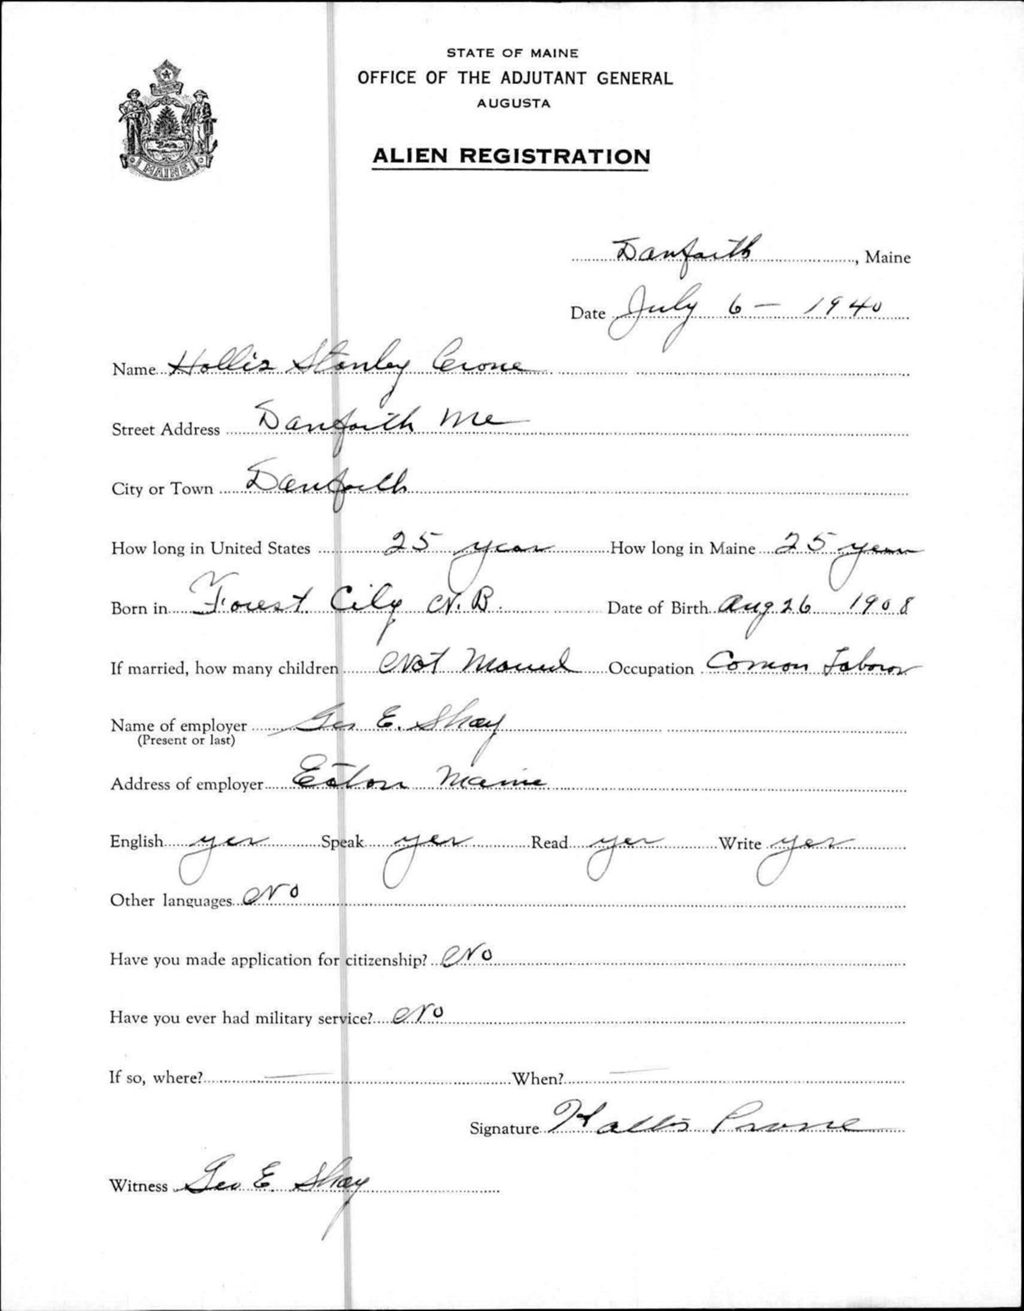 STATE OF MAINE
OFFICE OF THE ADJUTANT GENERAL
AUGUSTA
ALIEN REGISTRATION
MAINE
Danforth, Maine
Date July 6 - 1940
Name Hollis Stanley Crone
Street Address Danforth Me
City or Town Danforth
How long in United States 25 year How long in Maine 25 year
Born in Forest City N.B. Date of Birth Aug 26 1908
If married, how many children Not Married Occupation Comon Labor
Name of employer Geo E. Shay
(Present or last)
Address of employer Eaton Maine
English yes Speak yes Read yes Write yes
Other languages No
Have you made application for citizenship? No
Have you ever had military service? No
If so, where? — When? —
Signature Hollis Crone
Witness Geo E. Shay